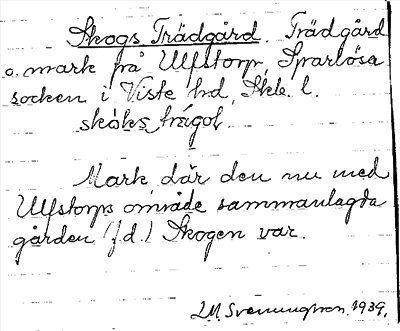 Skogs Trädgård. Trädgård
o. mark på Ulfstorp, Sparlösa
socken i Viste hd, Skbl. l.
skoks trägol.
Mark där den nu med
Ulfstorps område sammanlagda
gården (f.d.) Skogen var.
L.M. Svenungsson. 1939.